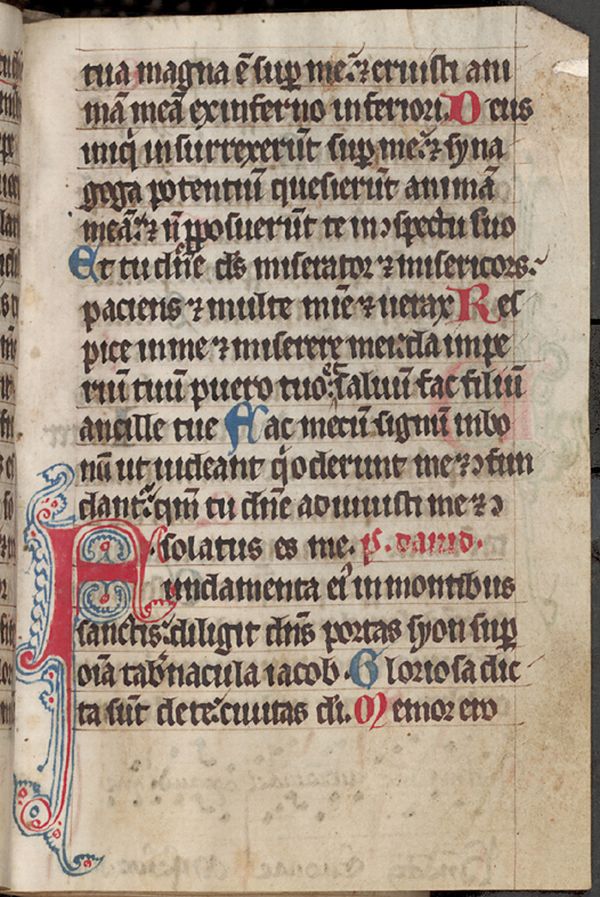 tua magna ē sup̄ me. ⁊ eruisti ani
mā meā ex inferno inferiori. Deus
iniq̄ insurrexerūt sup̄ me. ⁊ syna
goga potentiū quesierūt animā
meā. ⁊ n̄ ꝓposuerūt te in ↄspectu suo
Et tu dn̄e ds̄ miserator ⁊ misericors.
paciens ⁊ multe mīe ⁊ uerax Res
pice in me ⁊ miserere mei. da impe
riū tuū puero tuo. ⁊ saluū fac filiū
ancille tue Fac mecū signū in bo
nū ut uideant q̇ oderunt me ⁊ ↄfun
dant᷑. qm̄ tu dn̄e adiuuisti me ⁊ ↄ
solatus es me. p̄s. dauid.
Fundamenta ei᷒ in montibus
sanctis. diligit dn̄s portas syon sup̄
oīa tab̄nacula iacob. Gloriosa dic
ta sūt de te. ciuitas di. Memor ero